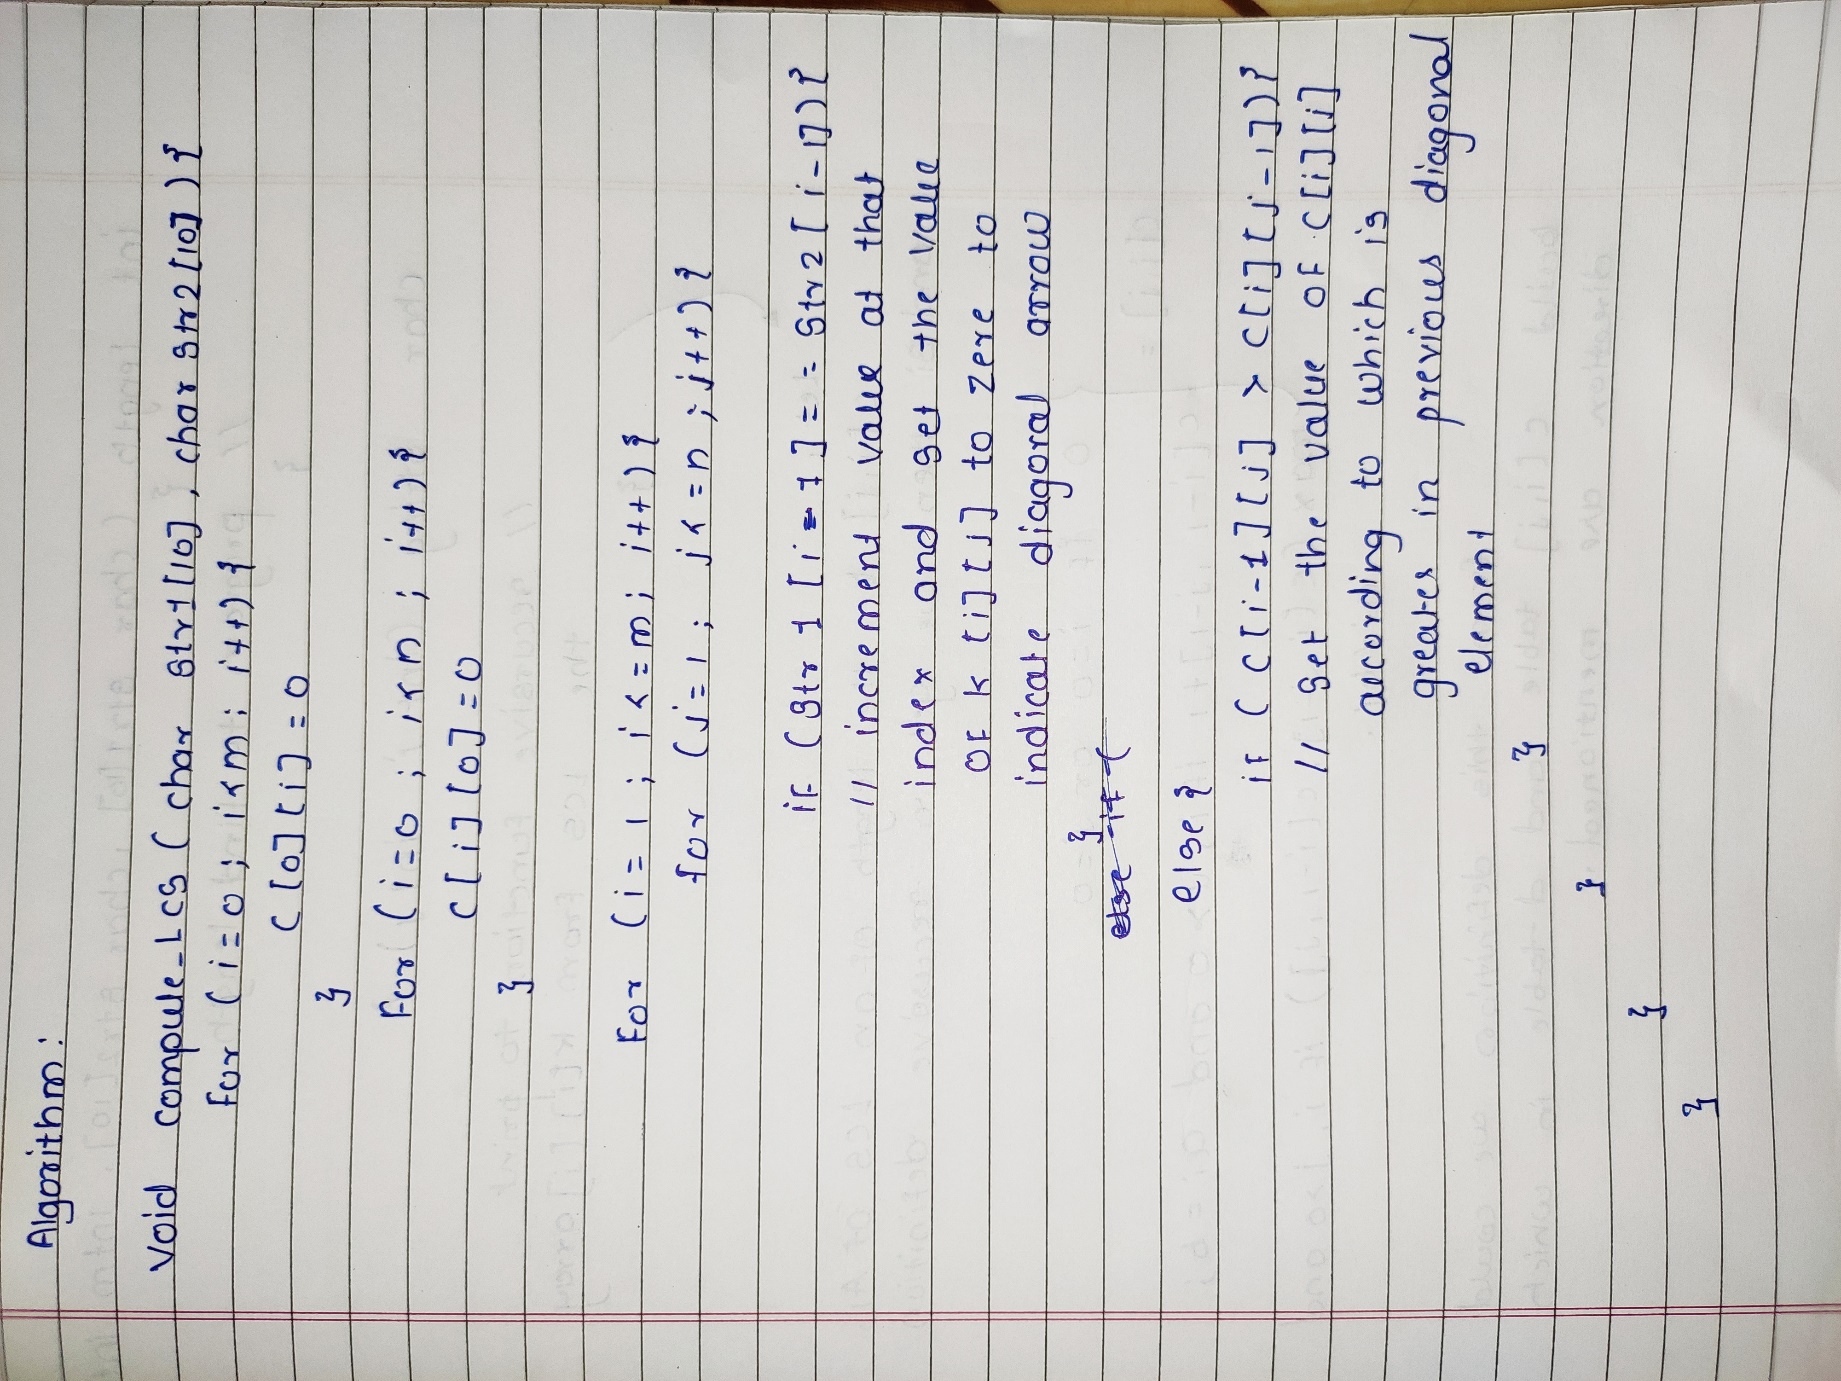 Algorithm:
Void compute_LCS ( char str1[10], char str2[10] ) {
for ( i = 0; i < m; i++) {
C [0] [i] = 0
}
For ( i = 0 ; i < n ; i++) {
C [i] [0] = 0
}
For ( i = 1 ; i <= m ; i++) {
for ( j = 1 ; j <= n ; j++) {
if ( Str 1 [ i - 1 ] == Str 2 [ i - 1]) {
// increment value at that
index and set the value
of k [i] [j] to zere to
indicate diagoral arrow
}
else {
if ( C [ i - 1 ] [ j ] > C [ i ] [ j - 1 ]) {
// set the value of C [i] [i]
according to which is
greater in previous diagonal
element
}
}
}
}